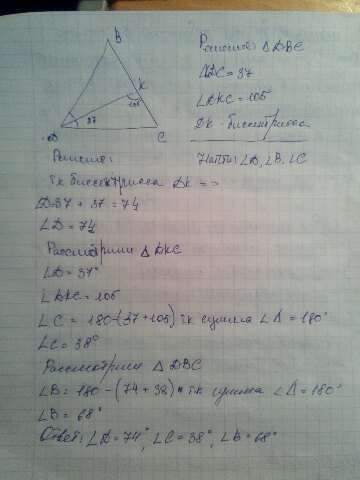 B
K
105
37
D
C
Решение: △DBC
∠DC = 37
∠DKC = 105
DK - биссектриса
Найти: ∠D, ∠B, ∠C
Решение:
тк биссектриса DK =>
D=37 + 37 = 74
∠D = 74
Рассмотрим △DKC
∠D = 37°
∠DKC = 105
∠C = 180-(37+105) тк сумма ∠△ = 180°
∠C = 38°
Рассмотрим △DBC
∠B = 180 - (74 + 38) тк сумма ∠△ = 180°
∠B = 68°
Ответ: ∠D = 74°, ∠C = 38°, ∠B = 68°